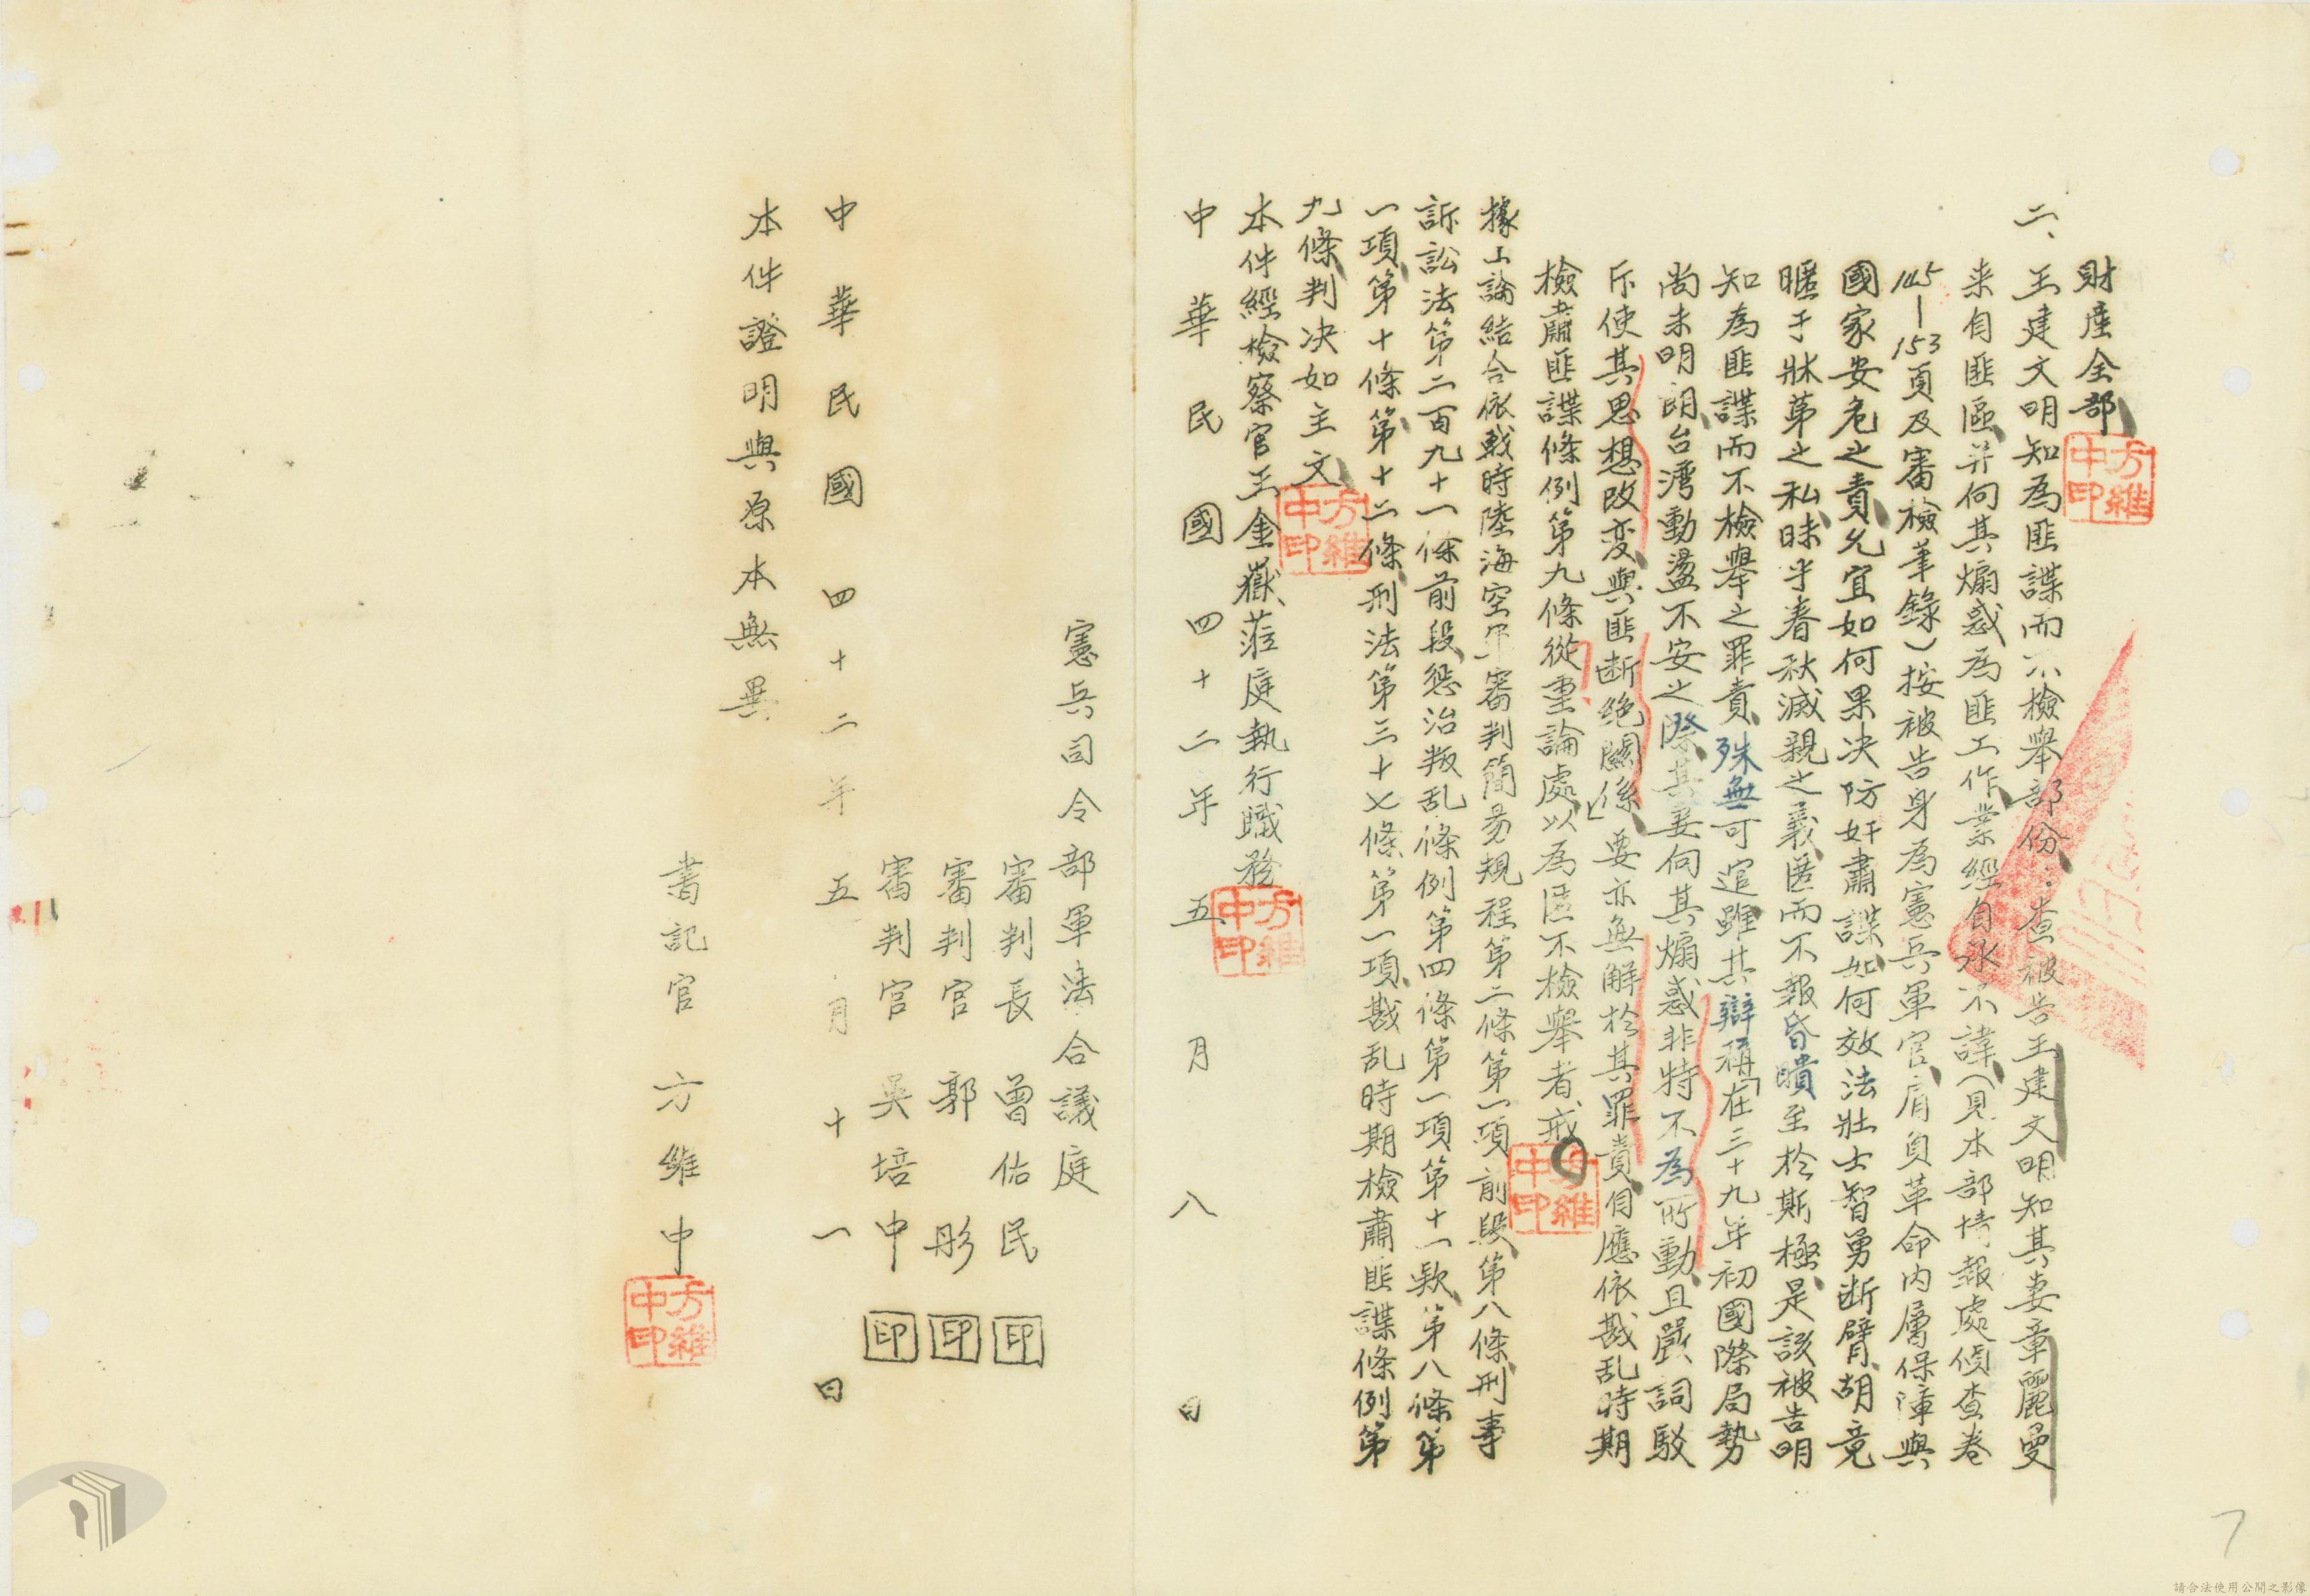 財產全部、
二、王建文明知為匪諜而不檢舉部份：查被告王建文明知其妻章麗曼
来自匪區、并向其煽惑為匪工作、業經自承不諱、（見本部情報處偵查卷
145—153頁及審檢筆錄）按被告身為憲兵軍官、肩負革命內層保障與
國家安危之責、允宜如何果決防奸肅諜、如何效法壯士智勇断臂、胡竟
暱于牀笫之私、昧乎春秋滅親之義、匿而不報、昏瞶至於斯極、是該被告明
知為匪諜而不檢舉之罪責、殊無可逭、雖其辯稱「在三十九年初國際局勢
尚未明朗、台灣動盪不安之際、其妻向其煽惑、非特不為所動、且嚴詞駁
斥使其思想改变、與匪断绝關係」、要亦無解於其罪責、自應依戡乱時期
檢肅匪諜條例第九條從重論處、以為匿不檢舉者戒。
據上論結、合依戰時陸海空軍審判簡易規程第二條第一項前段、第八條、刑事
訴訟法第二百九十一條前段、懲治叛乱條例第四條第一項第十一欵、第八條第
一項、第十條、第十二條、刑法第三十七條第一項、戡乱時期檢肅匪諜條例第
九條判決如主文、
本件經檢察官王金嶽蒞庭執行職務
中華民國四十二年五月八日
憲兵司令部軍法合議庭
審判長 曾佑民 印
審判官 郭彤 印
審判官 吳培中 印
中華民國四十二年五月十一日
本件證明與原本無異
書記官 方維中
方維中印
方維中印
方維中印
方維中印
方維中印
7
請合法使用公開之影像